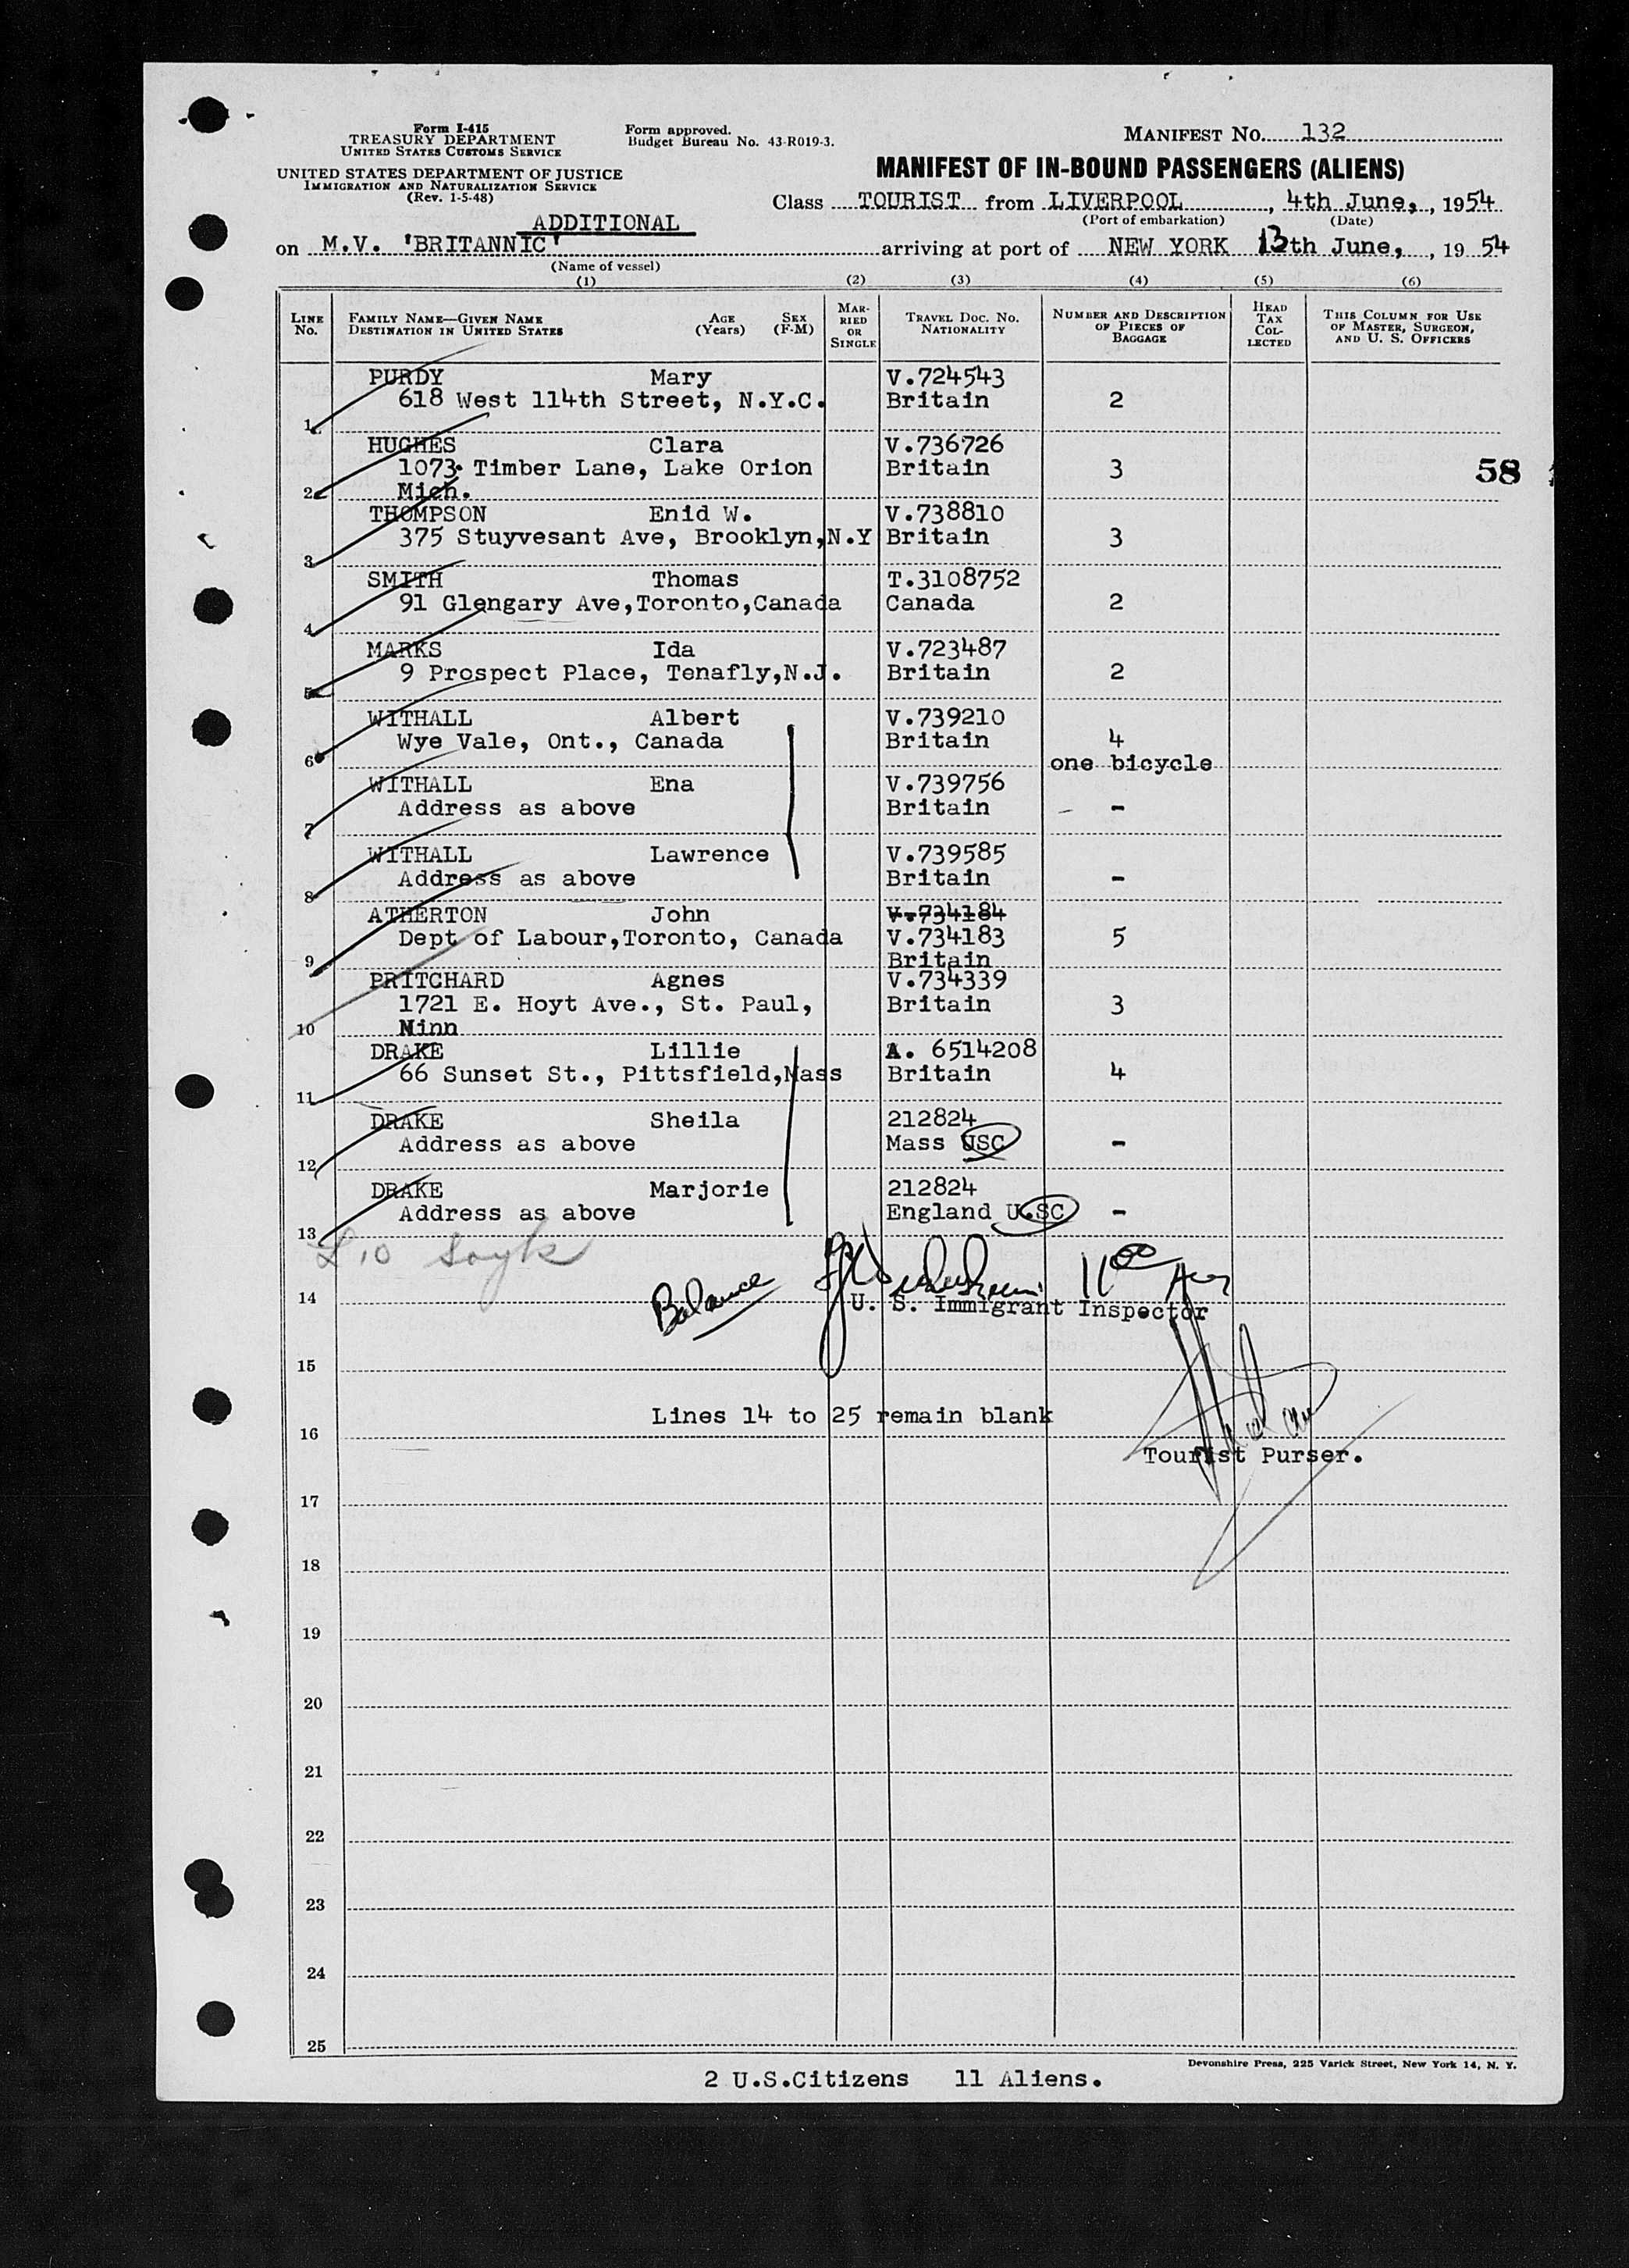 Form I-415
TREASURY DEPARTMENT
UNITED STATES CUSTOMS SERVICE
UNITED STATES DEPARTMENT OF JUSTICE
IMMIGRATION AND NATURALIZATION SERVICE
(Rev. 1-5-48)
Form approved.
Budget Bureau No. 43-R019-3.
MANIFEST No. 132
MANIFEST OF IN-BOUND PASSENGERS (ALIENS)
Class TOURIST from LIVERPOOL, 4th June, , 1954
(Port of embarkation) (Date)
ADDITIONAL
on M.V. 'BRITANNIC' arriving at port of NEW YORK 13th June, , 1954
(Name of vessel)
(1) (2) (3) (4) (5) (6)
LINE No. FAMILY NAME—GIVEN NAME DESTINATION IN UNITED STATES AGE (Years) SEX (F-M) MARRIED OR SINGLE TRAVEL DOC. NO. NATIONALITY NUMBER AND DESCRIPTION OF PIECES OF BAGGAGE HEAD TAX COLLECTED THIS COLUMN FOR USE OF MASTER, SURGEON, AND U. S. OFFICERS
PURDY Mary V.724543
618 West 114th Street, N.Y.C. Britain 2
1
HUGHES Clara V.736726
1073 Timber Lane, Lake Orion Britain 3
58
2 Mich.
THOMPSON Enid W. V.738810
375 Stuyvesant Ave, Brooklyn,N.Y Britain 3
3
SMITH Thomas T.3108752
91 Glengary Ave,Toronto,Canada Canada 2
4
MARKS Ida V.723487
9 Prospect Place, Tenafly,N.J. Britain 2
5
WITHALL Albert V.739210
Wye Vale, Ont., Canada Britain 4
6 one bicycle
WITHALL Ena V.739756
Address as above Britain -
7
WITHALL Lawrence V.739585
Address as above Britain -
8
ATHERTON John V.734184
Dept of Labour,Toronto, Canada V.734183 5
9 Britain
PRITCHARD Agnes V.734339
1721 E. Hoyt Ave., St. Paul, Britain 3
10 Minn
DRAKE Lillie A. 6514208
66 Sunset St., Pittsfield,Mass Britain 4
11
DRAKE Sheila 212824
Address as above Mass USC -
12
DRAKE Marjorie 212824
Address as above England U.SC -
13
Balance 11 00
14 U. S. Immigrant Inspector
15
Lines 14 to 25 remain blank
16
Tourist Purser.
17
18
19
20
21
22
23
24
25
Devonshire Press, 225 Varick Street, New York 14, N. Y.
2 U.S.Citizens 11 Aliens.